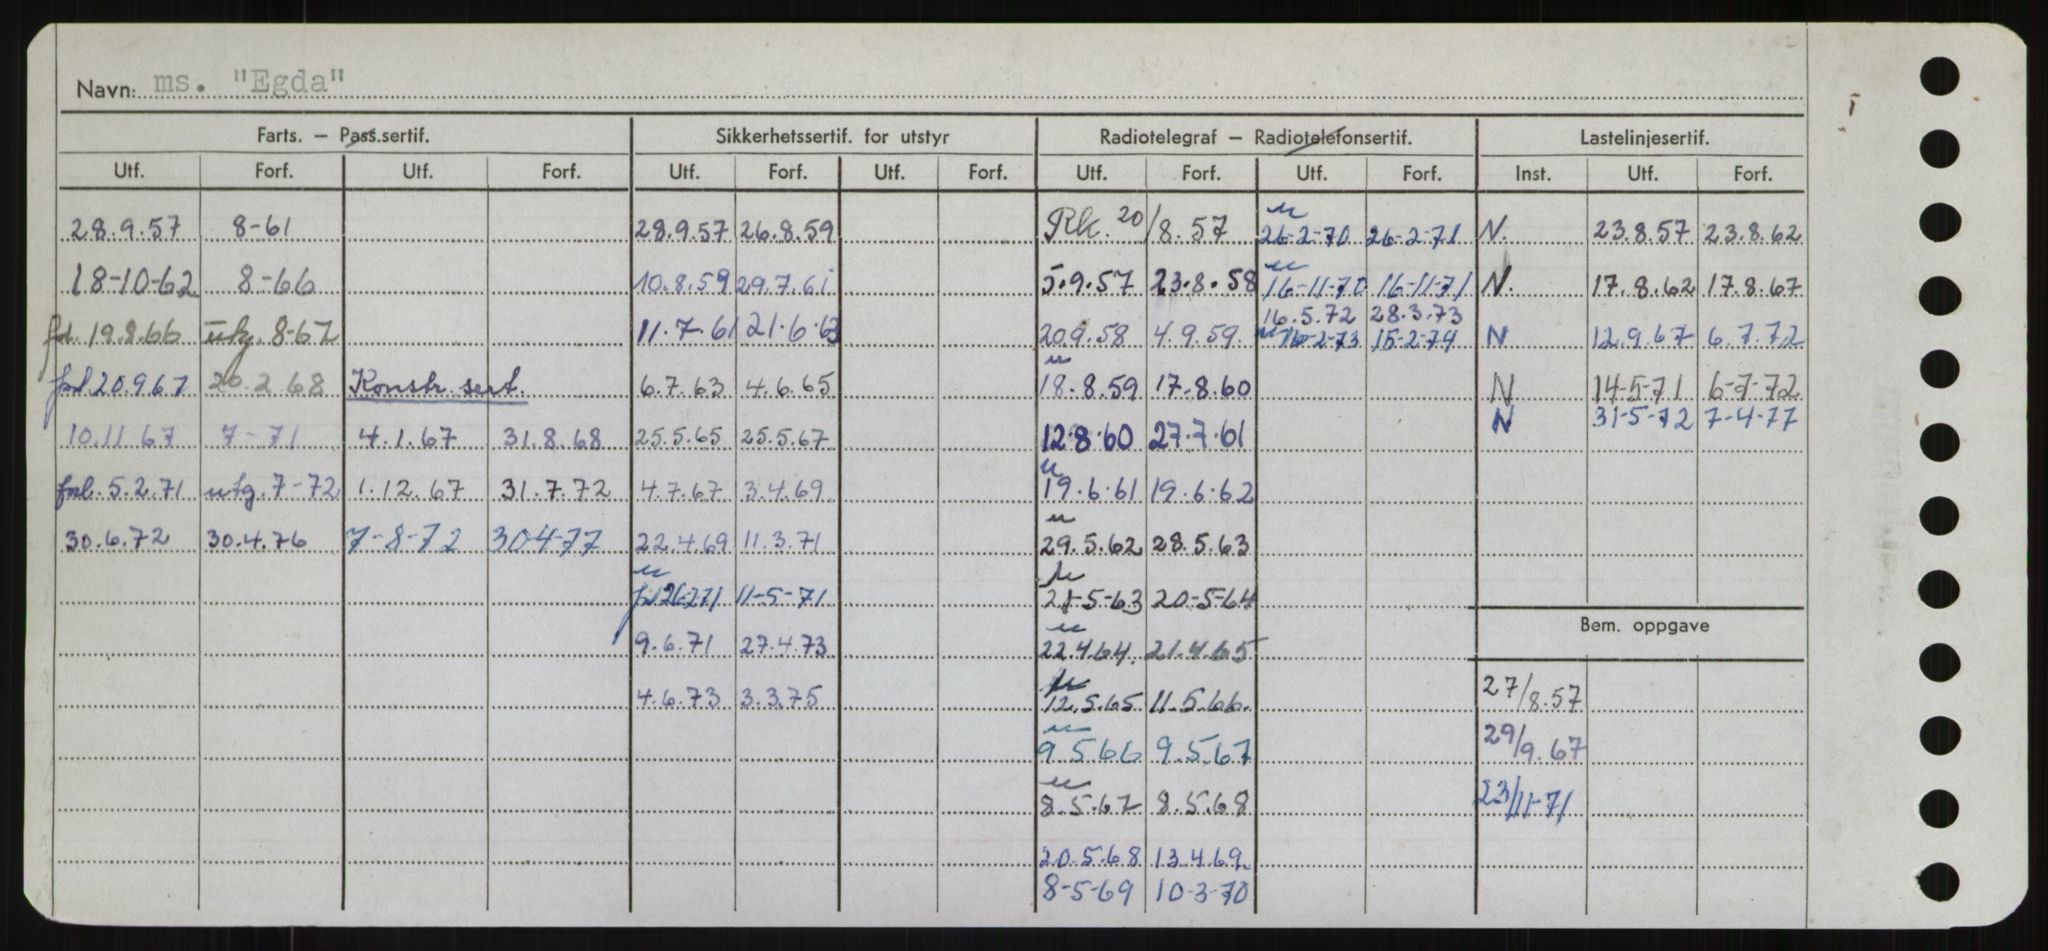 Navn: ms. "Egda"
Farts. — Pass.sertif. Sikkerhetssertif. for utstyr Radiotelegraf — Radiotelefonsertif. Lastelinjesertif.
Utf. Forf. Utf. Forf. Utf. Forf. Utf. Forf. Utf. Forf. Utf. Forf. Inst. Utf. Forf.
28.9.57 8-61 28.9.57 26.8.59 Rk. 20/8.57 26-2-70 26-2-71 N. 23.8.57 23.8.62
18-10-62 8-66 10.8.59 29.7.61 5.9.57 23.8.58 16-11-70 16-11-71 N. 17.8.62 17.8.67
16.5.72 28.3.73
19.8.66 utg. 8-67 11.7.61 21.6.63 20.9.58 4.9.59. 16-2-73 15-2-74 N 12.9.67 6.7.72
20.9.67 20.2.68 Konstr. sert. 6.7.63 4.6.65 18.8.59 17.8.60 N 14-5-71 6-7-72
N 31-5-72 7-4-77
10.11.67 7-71 4.1.67 31.8.68 25.5.65 25.5.67 12.8.60 27.7.61
fnl. 5.2.71 utg. 7-72 1.12.67 31.7.72 4.7.67 3.4.69 19.6.61 19.6.62
30.6.72 30.4.76 7-8-72 30-4-77 22.4.69 11.3.71 29.5.62 28.5.63
26-2-71 11-5-71 21-5-63 20-5-64
Bem. oppgave
9.6.71 27.4.73 22.4.64. 21.4.65
4.6.73 3.3.75 12.5.65 11.5.66. 27/8.57
9.5.66 9.5.67 29/9.67
8.5.67 8.5.68 23/11-71
20.5.68 13.4.69
8-5-69 10-3-70